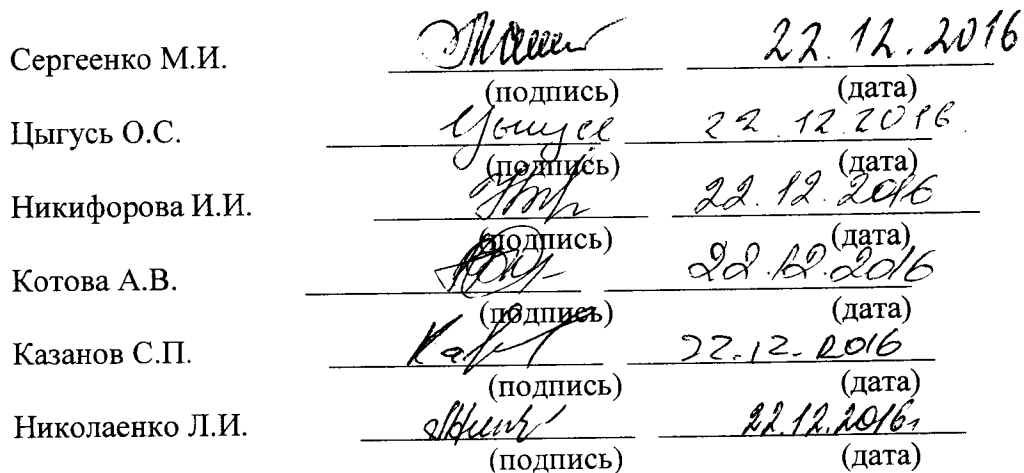 Сергеенко М.И. 22.12.2016
(подпись) (дата)
Цыгусь О.С. Цыгусь 22.12.2016
(подпись) (дата)
Никифорова И.И. 22.12.2016
(подпись) (дата)
Котова А.В. 22.12.2016
(подпись) (дата)
Казанов С.П. 22.12.2016
(подпись) (дата)
Николаенко Л.И. 22.12.2016г
(подпись) (дата)